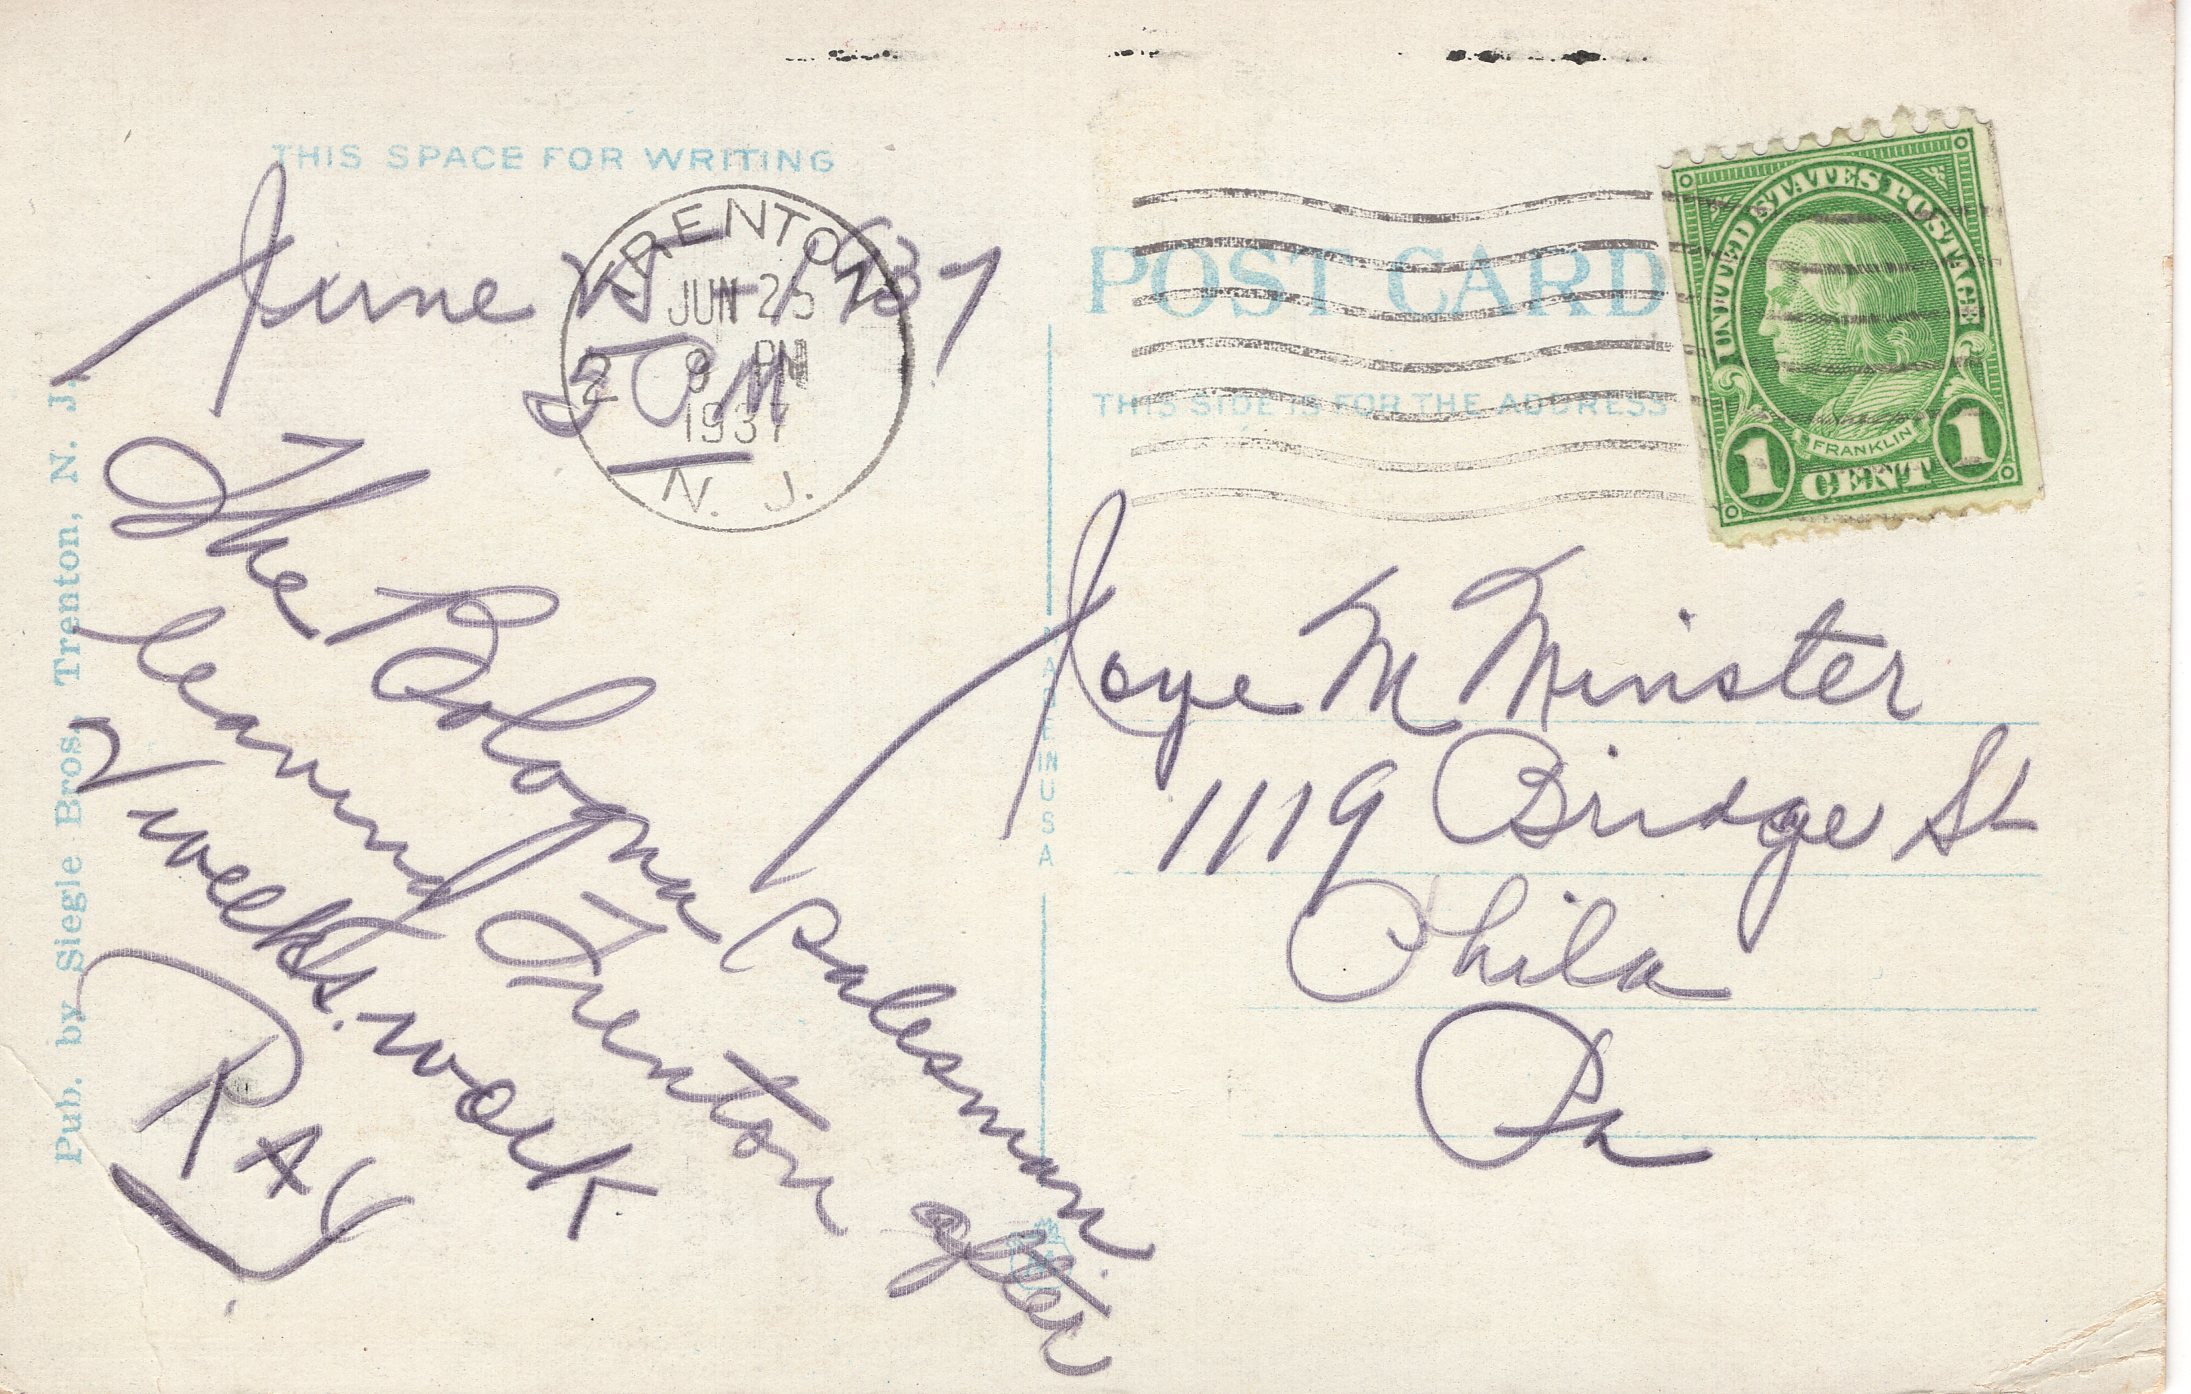 THIS SPACE FOR WRITING
June 25 - 1937
5 PM
The Bologna Salesman
leaving Trenton after
2 weeks. work
RAY
TRENTON
JUN 25
8 PM
1937
N. J.
2
Pub. by Siegle Bros., Trenton, N. J.
MADE IN U S A
POST CARD
THIS SIDE IS FOR THE ADDRESS
UNITED STATES POSTAGE
FRANKLIN
1 CENT 1
Joye M Minster
1119 Bridge St
Phila
Pa